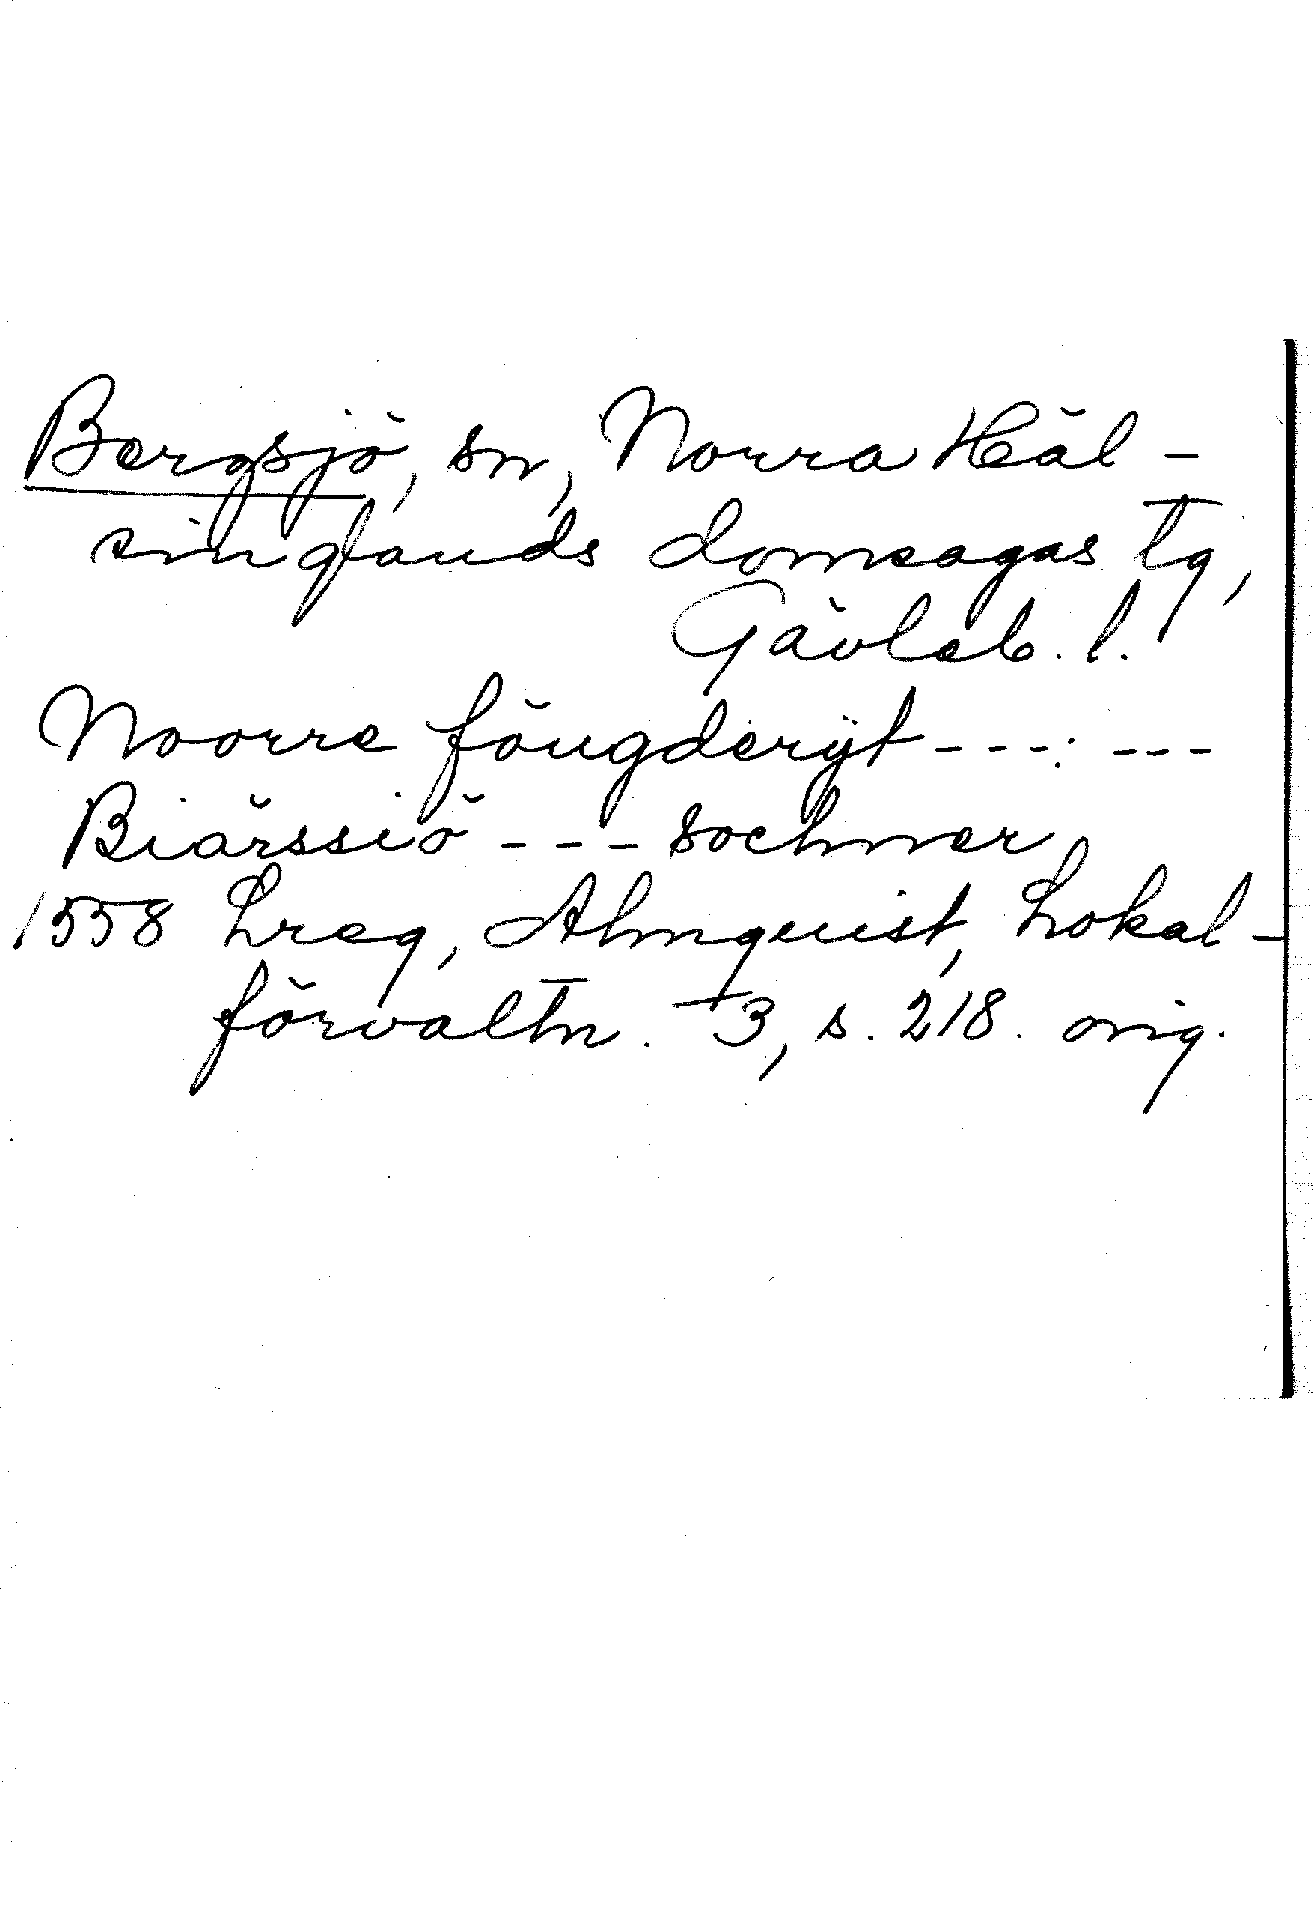 Bergsjö, sn, Norra Häl-
singlands domsagas tg,
Gävleb. l.
Noorre föugderÿt ---:---
Biärssiö --- sochner
1558 Lreg, Almquist, Lokal-
förvaltn. 3, s. 218. orig.